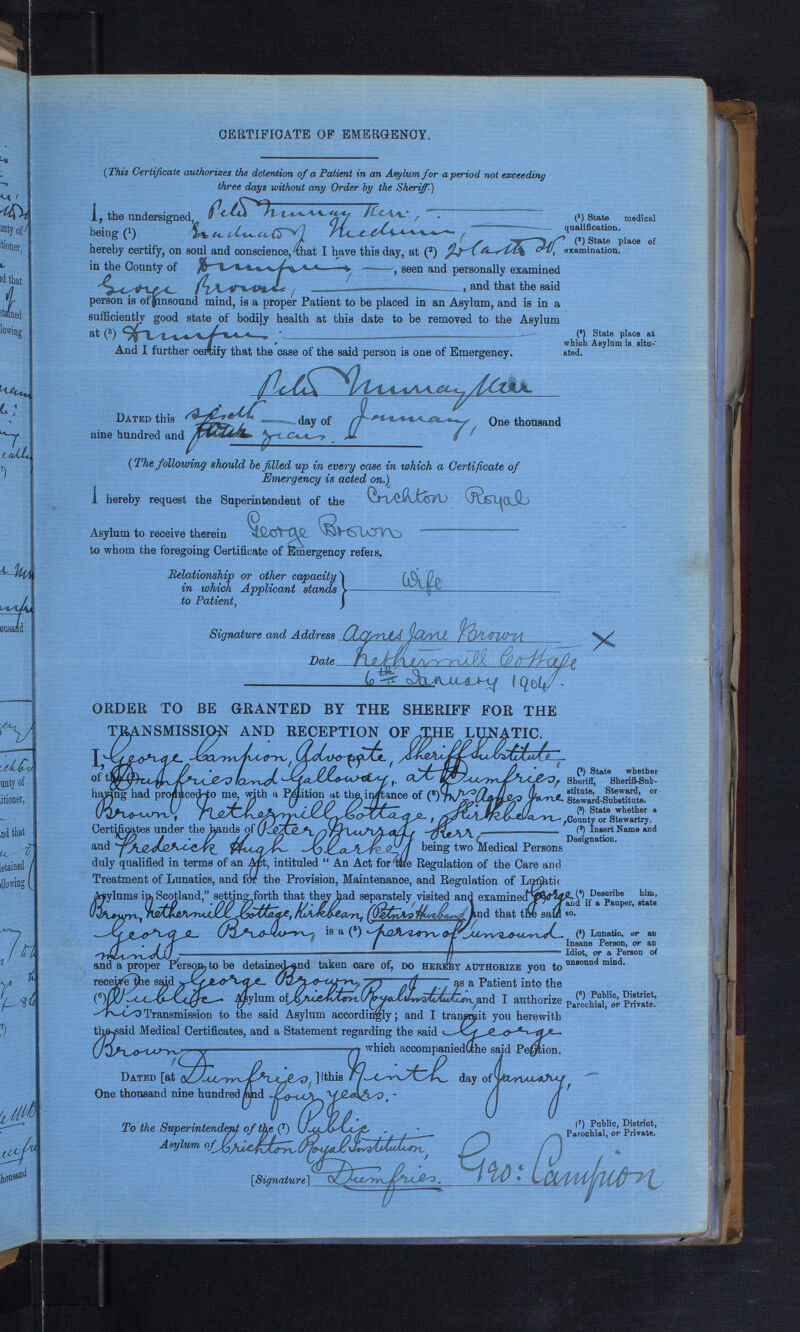 CERTIFICATE OF EMERGENCY.
(This Certificate authorizes the detention of a Patient in an Asylum for a period not exceeding
three days without any Order by the Sheriff.)
I, the undersigned, Peter Murray Kerr,
being (1) Graduate of Medicine
hereby certify, on soul and conscience, that I have this day, at (2)
in the County of Dumfries, seen and personally examined
George Brown, and that the said
person is of unsound mind, is a proper Patient to be placed in an Asylum, and is in a
sufficiently good state of bodily health at this date to be removed to the Asylum
at (3) Dumfries.
And I further certify that the case of the said person is one of Emergency.
(1) State medical
qualification.
(2) State place of
examination.
(3) State place at
which Asylum is situ-
ated.
Peter Murray Kerr
DATED this sixth day of January, One thousand
nine hundred and four years.
(The following should be filled up in every case in which a Certificate of
Emergency is acted on.)
I hereby request the Superintendent of the Crichton Royal
Asylum to receive therein George Brown
to whom the foregoing Certificate of Emergency refers.
Relationship or other capacity
in which Applicant stands
to Patient,
Wife
Signature and Address Agnes Jane Brown X
Date Nethermill Cottage
6th January 1904.
ORDER TO BE GRANTED BY THE SHERIFF FOR THE
TRANSMISSION AND RECEPTION OF THE LUNATIC.
I, George Campion, Advocate, Sheriff Substitute
of (1) Dumfries and Galloway, at Dumfries,
having had produced to me, with a Petition at the instance of (2) Mrs Agnes Jane
Brown, Nethermill Cottage, Kirkbean,
Certificates under the hands of Peter Murray Kerr
and Frederick Hugh Clarke, being two Medical Persons
duly qualified in terms of an Act, intituled "An Act for the Regulation of the Care and
Treatment of Lunatics, and for the Provision, Maintenance, and Regulation of Lunatic
Asylums in Scotland," setting forth that they had separately visited and examined George (4)
Brown, Nethermill Cottage, Kirkbean, (Petnrs Husband) and that the said
George Brown, is a (5) person of unsound
mind,
and a proper Person to be detained and taken care of, DO HEREBY AUTHORIZE you to
receive the said George Brown as a Patient into the
(6) Public Asylum of Crichton Royal Institution, and I authorize
his Transmission to the said Asylum accordingly; and I transmit you herewith
the said Medical Certificates, and a Statement regarding the said George
Brown, which accompanied the said Petition.
DATED [at Dumfries,] this Ninth day of January,
One thousand nine hundred and four years.
To the Superintendent of the (7) Public
Asylum of Crichton Royal Institution,
Dumfries.
[Signature] Geo: Campion
(1) State whether
Sheriff, Sheriff-Sub-
stitute, Steward, or
Steward-Substitute.
(2) State whether a
County or Stewartry.
(3) Insert Name and
Designation.
(4) Describe him,
and if a Pauper, state
so.
(5) Lunatic, or an
Insane Person, or an
Idiot, or a Person of
unsound mind.
(6) Public, District,
Parochial, or Private.
(7) Public, District,
Parochial, or Private.